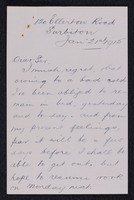 Ellerton Road
Surbiton
Jan 1915
Dear Sir,
I much regret that
owing to a bad cold
I've been obliged to re-
main in bed yesterday
and to-day, and from
my present feelings,
fear it will be a few
days before I shall be
able to get out but
hope to resume work
on Monday next